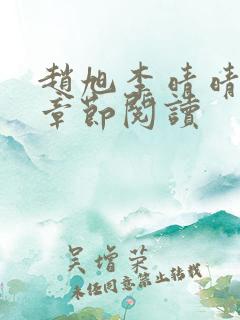 趙旭李晴晴
章節閱讀
吴增荣
未经同意禁止转载